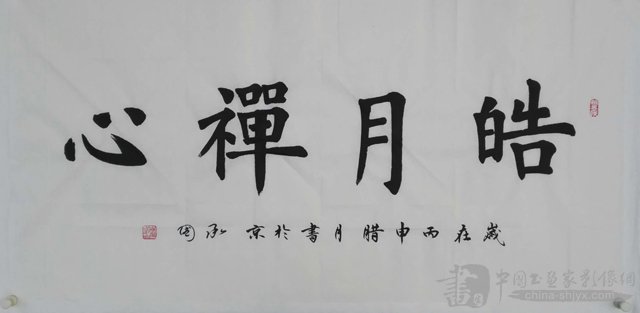 皓月禪心
歲在丙申腊月書於京 泓图
書 中国书画家影像網
china-shiyx.com